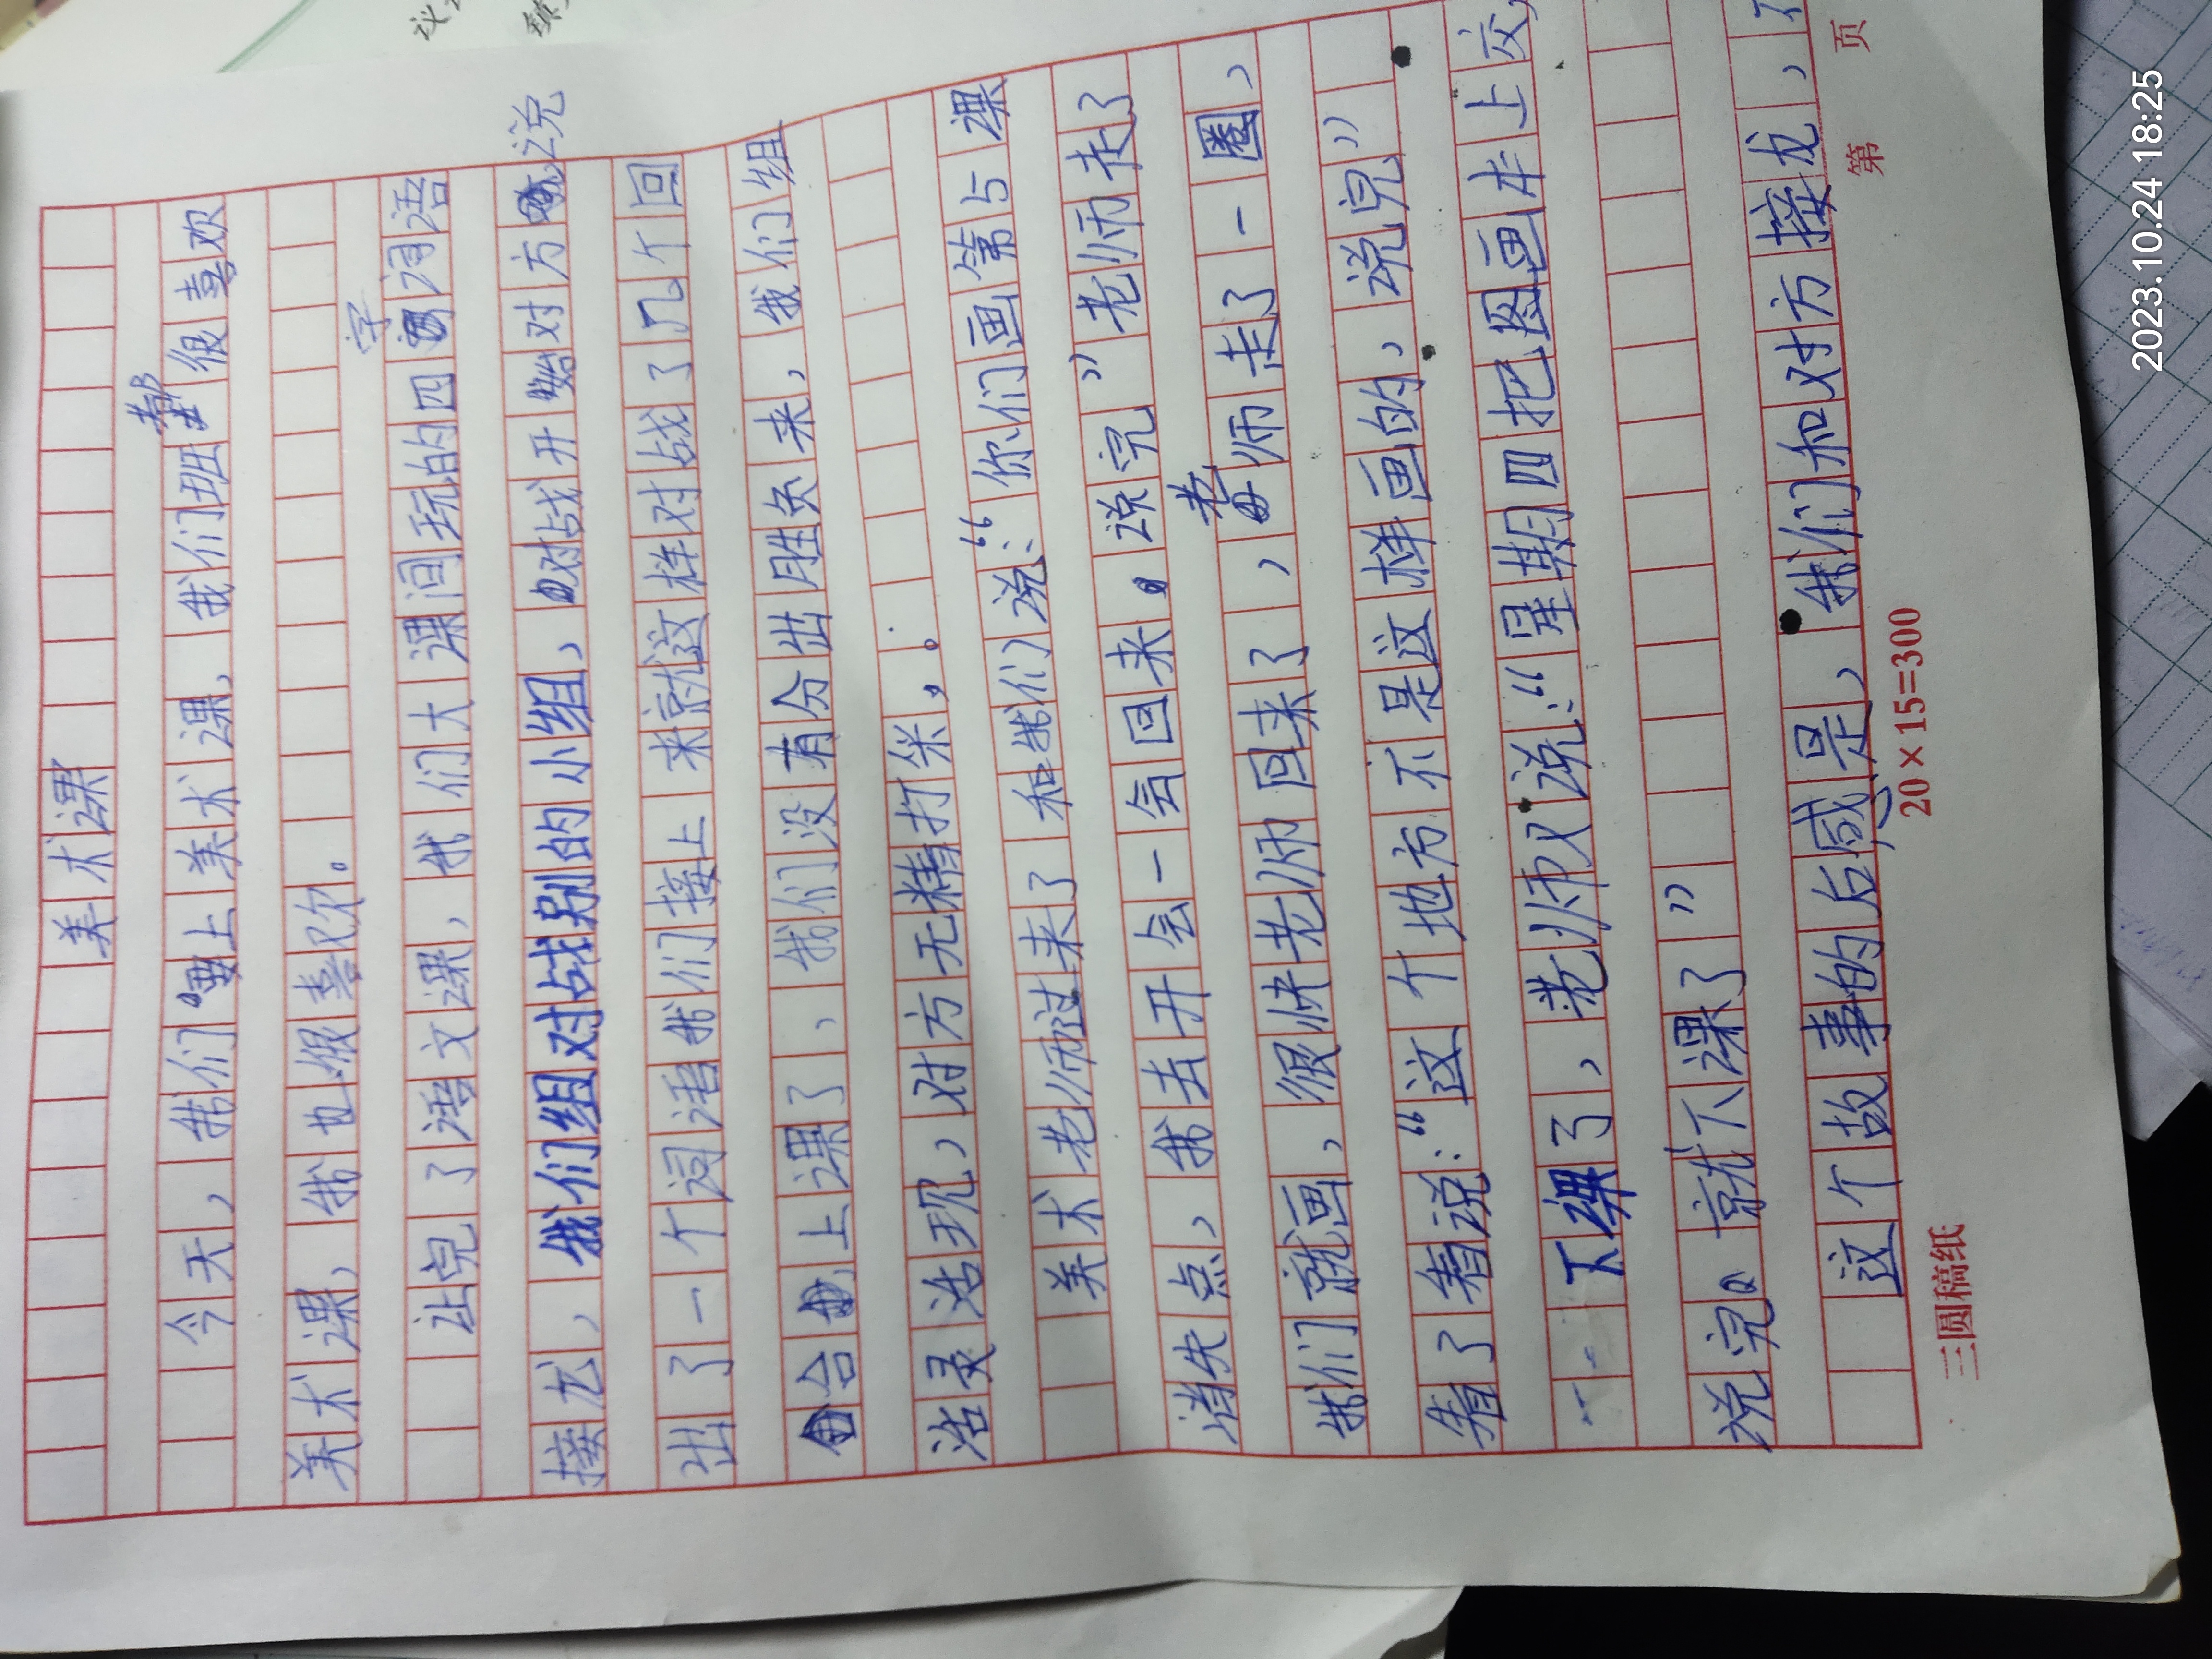 美术课
今天，我们要上美术课，我们班都很喜欢
美术课，我也很喜欢。
让完了语文课，我们大课间玩的四字词语
接龙，我们组对战别的小组，对战开始对方说
出了一个词语我们接上来就这样对战了几个回
合上课了，我们没有分出胜负来，我们组
活灵活现，对方无精打采，。
美术老师过来了和我们说：“你们画第5课
消失点，我去开会一会回来。说完”老师走了
我们就画，很快老师回来了，老师走了一圈，
看了看说：“这个地方不是这样画的，说完”
下课了，老师又说：“星期四把图画本上交，
说完。就下课了”
这个故事的后感是，我们和对方接龙，不
20×15=300
三圆稿纸
第 页
2023.10.24 18:25